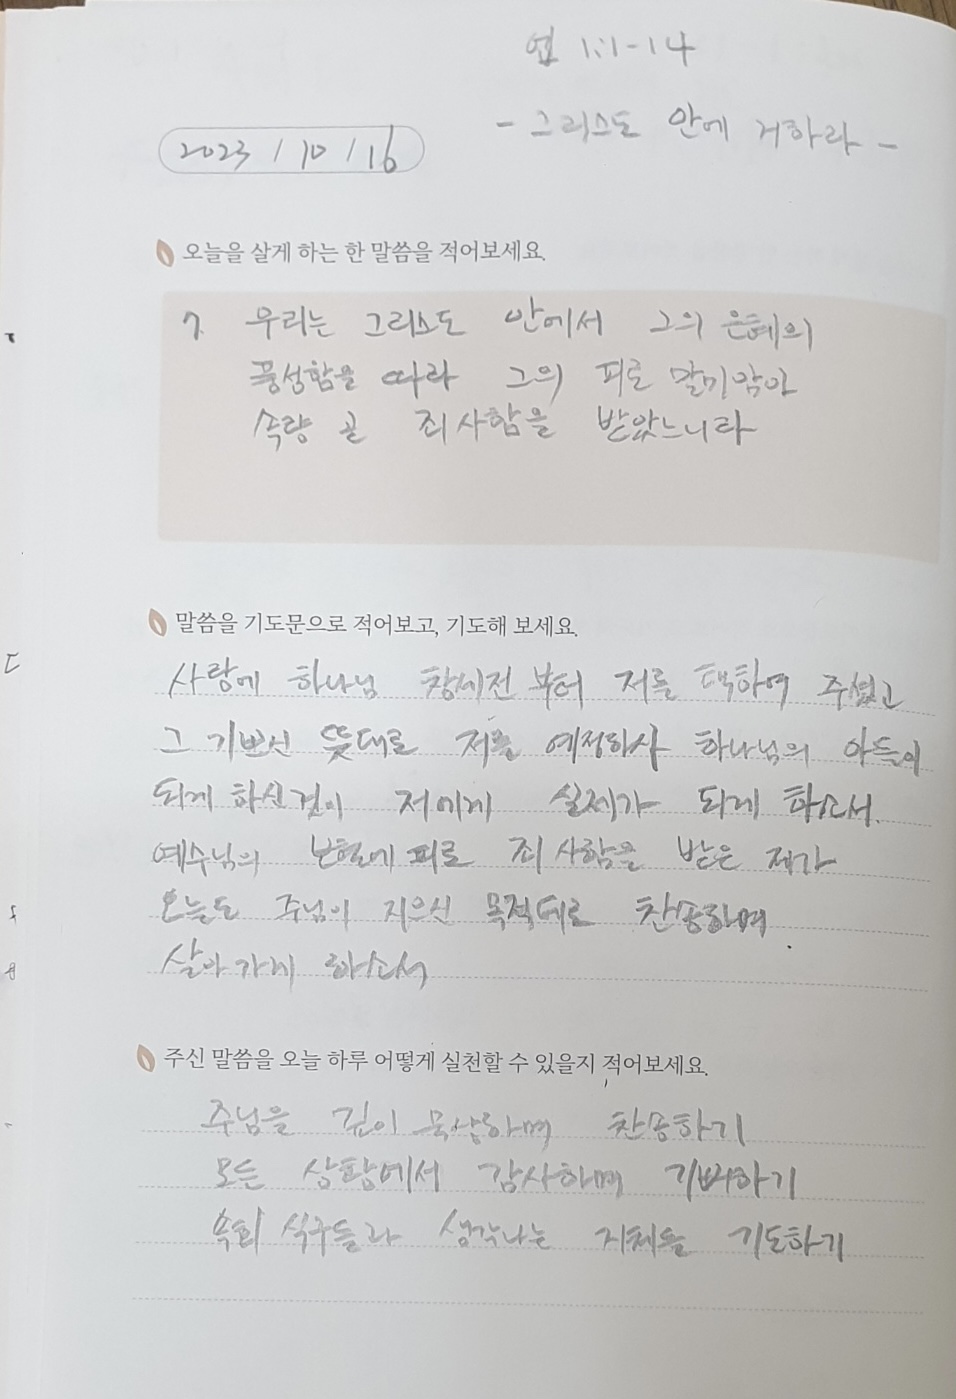 엡 1:1-14
- 그리스도 안에 거하라 -
2023 / 10 / 16
오늘을 살게 하는 한 말씀을 적어보세요.
7. 우리는 그리스도 안에서 그의 은혜의
풍성함을 따라 그의 피로 말미암아
속량 곧 죄 사함을 받았느니라
말씀을 기도문으로 적어보고, 기도해 보세요.
사랑에 하나님 창세전 부터 저를 택하여 주셨고
그 기쁘신 뜻대로 저를 예정하사 하나님의 아들이
되게 하신것이 저에게 실제가 되게 하소서.
예수님의 보혈에 피로 죄 사함을 받은 제가
오늘도 주님이 지으신 목적대로 찬송하며
살아가게 하소서
주신 말씀을 오늘 하루 어떻게 실천할 수 있을지 적어보세요.
주님을 깊이 묵상하며 찬송하기
모든 상황에서 감사하며 기뻐하기
속회 식구들과 생각나는 지체을 기도하기